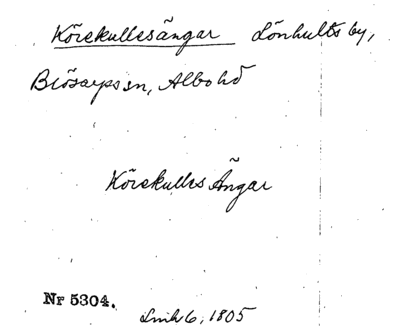 Körekullesängar Lönhults by,
Brösarps sn, Albo hd
Körekulles Ängar
Nr 5304.
Lmh 6, 1805